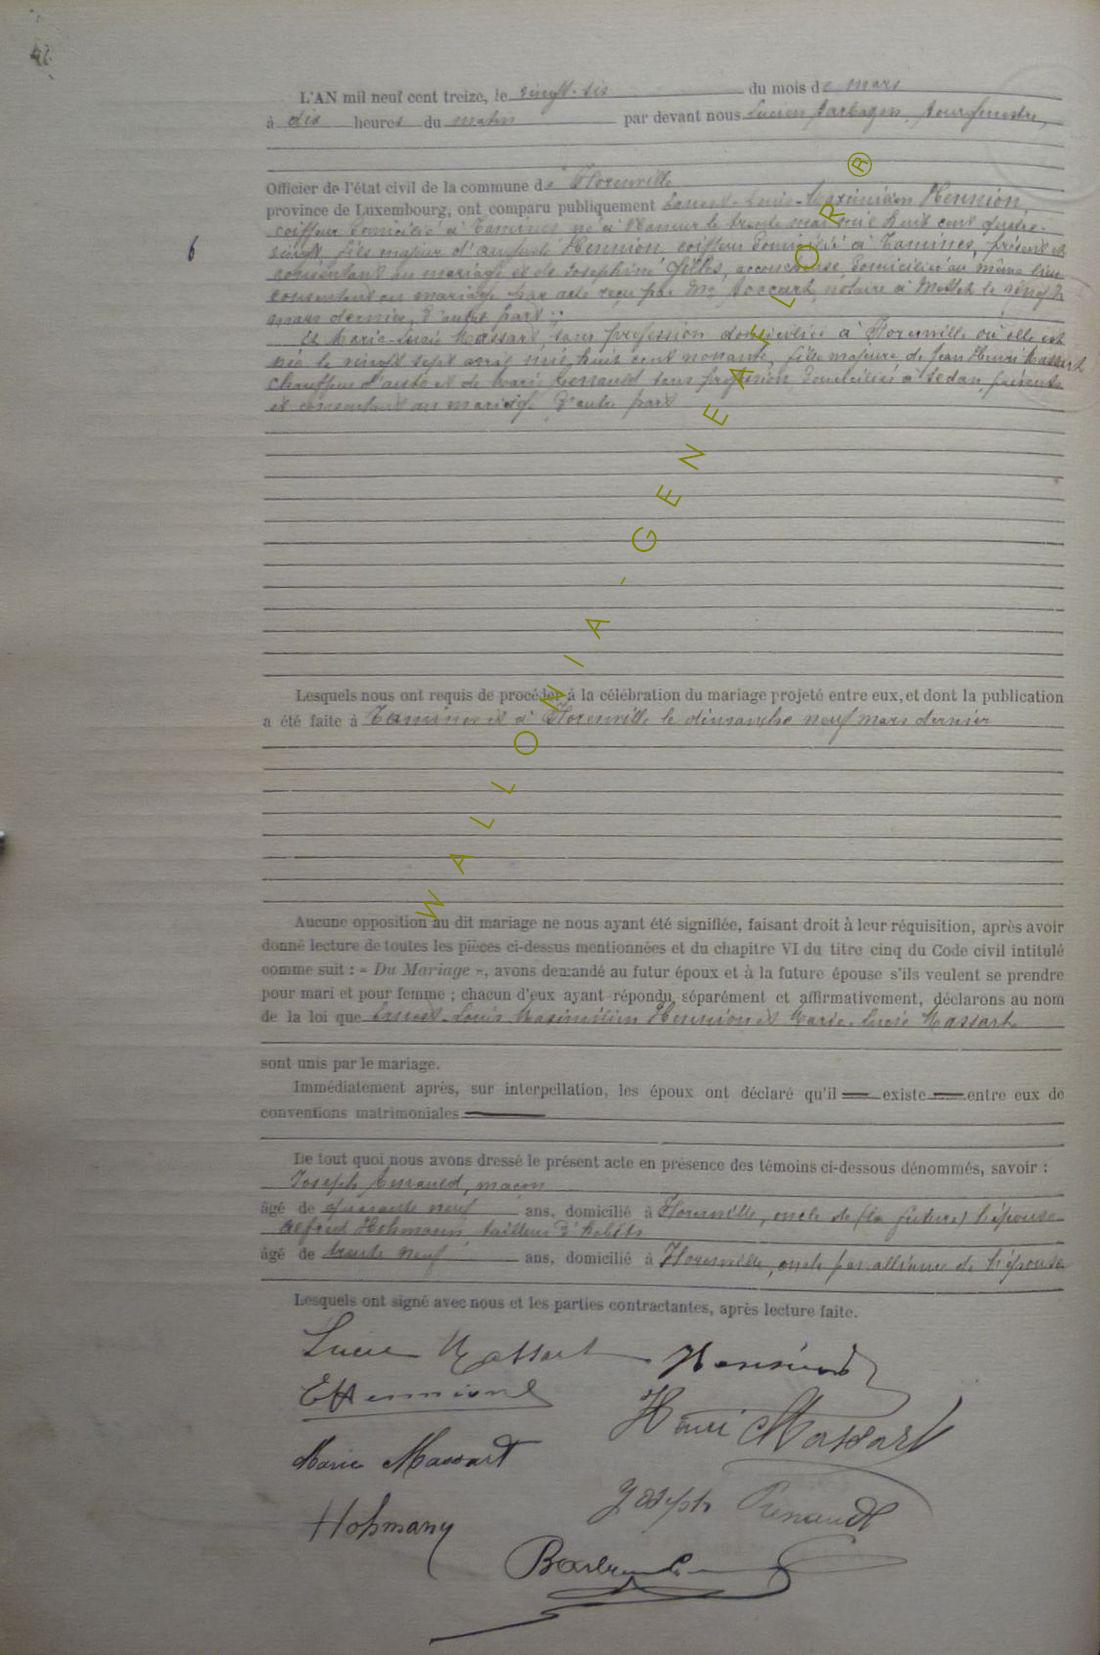 42
L'AN mil neuf cent treize, le vingt-six du mois de mars
à dix heures du matin par devant nous Lucien bourgmestre,
Officier de l'état civil de la commune de Florenville
province de Luxembourg, ont comparu publiquement Louis-Maximilien Hennion
coiffeur domicilié à Tamines né à Namur le trente mai mil huit cent quatre-
6
vingt, fils majeur d' Hennion, coiffeur domicilié à Tamines, présent et
consentant au mariage et de Joséphine Gilles, accoucheuse domiciliée au même lieu
consentant au mariage par acte reçu par Me notaire à le vingt
mars dernier, d'autre part ;
Et Marie-Lucie Massart, sans profession domiciliée à Florenville où elle est
née le vingt sept avril mil huit cent nonante, fille majeure de Jean Henri Massart
chauffeur d'auto et de Marie Renauld sans profession domiciliés à Sedan, présents
et consentant au mariage d'autre part
Lesquels nous ont requis de procéder à la célébration du mariage projeté entre eux, et dont la publication
a été faite à Tamines et à Florenville le dimanche neuf mars dernier
Aucune opposition au dit mariage ne nous ayant été signifiée, faisant droit à leur réquisition, après avoir
donné lecture de toutes les pièces ci-dessus mentionnées et du chapitre VI du titre cinq du Code civil intitulé
comme suit : « Du Mariage », avons demandé au futur époux et à la future épouse s'ils veulent se prendre
pour mari et pour femme ; chacun d'eux ayant répondu séparément et affirmativement, déclarons au nom
de la loi que Louis Maximilien Hennion et Marie-Lucie Massart
sont unis par le mariage.
Immédiatement après, sur interpellation, les époux ont déclaré qu'il existe entre eux de
conventions matrimoniales
De tout quoi nous avons dressé le présent acte en présence des témoins ci-dessous dénommés, savoir :
Joseph Renauld, maçon
âgé de quarante neuf ans, domicilié à Florenville, oncle de (la future) l'épouse
Alfred Hohmann, tailleur d'habits
âgé de trente neuf ans, domicilié à Florenville, oncle par alliance de l'épouse
Lesquels ont signé avec nous et les parties contractantes, après lecture faite.
Lucie Massart Hennion
E Hennion
Henri Massart
Marie Massart
Joseph Renauld
Hohmann
WALLONIA-GENEALOR®